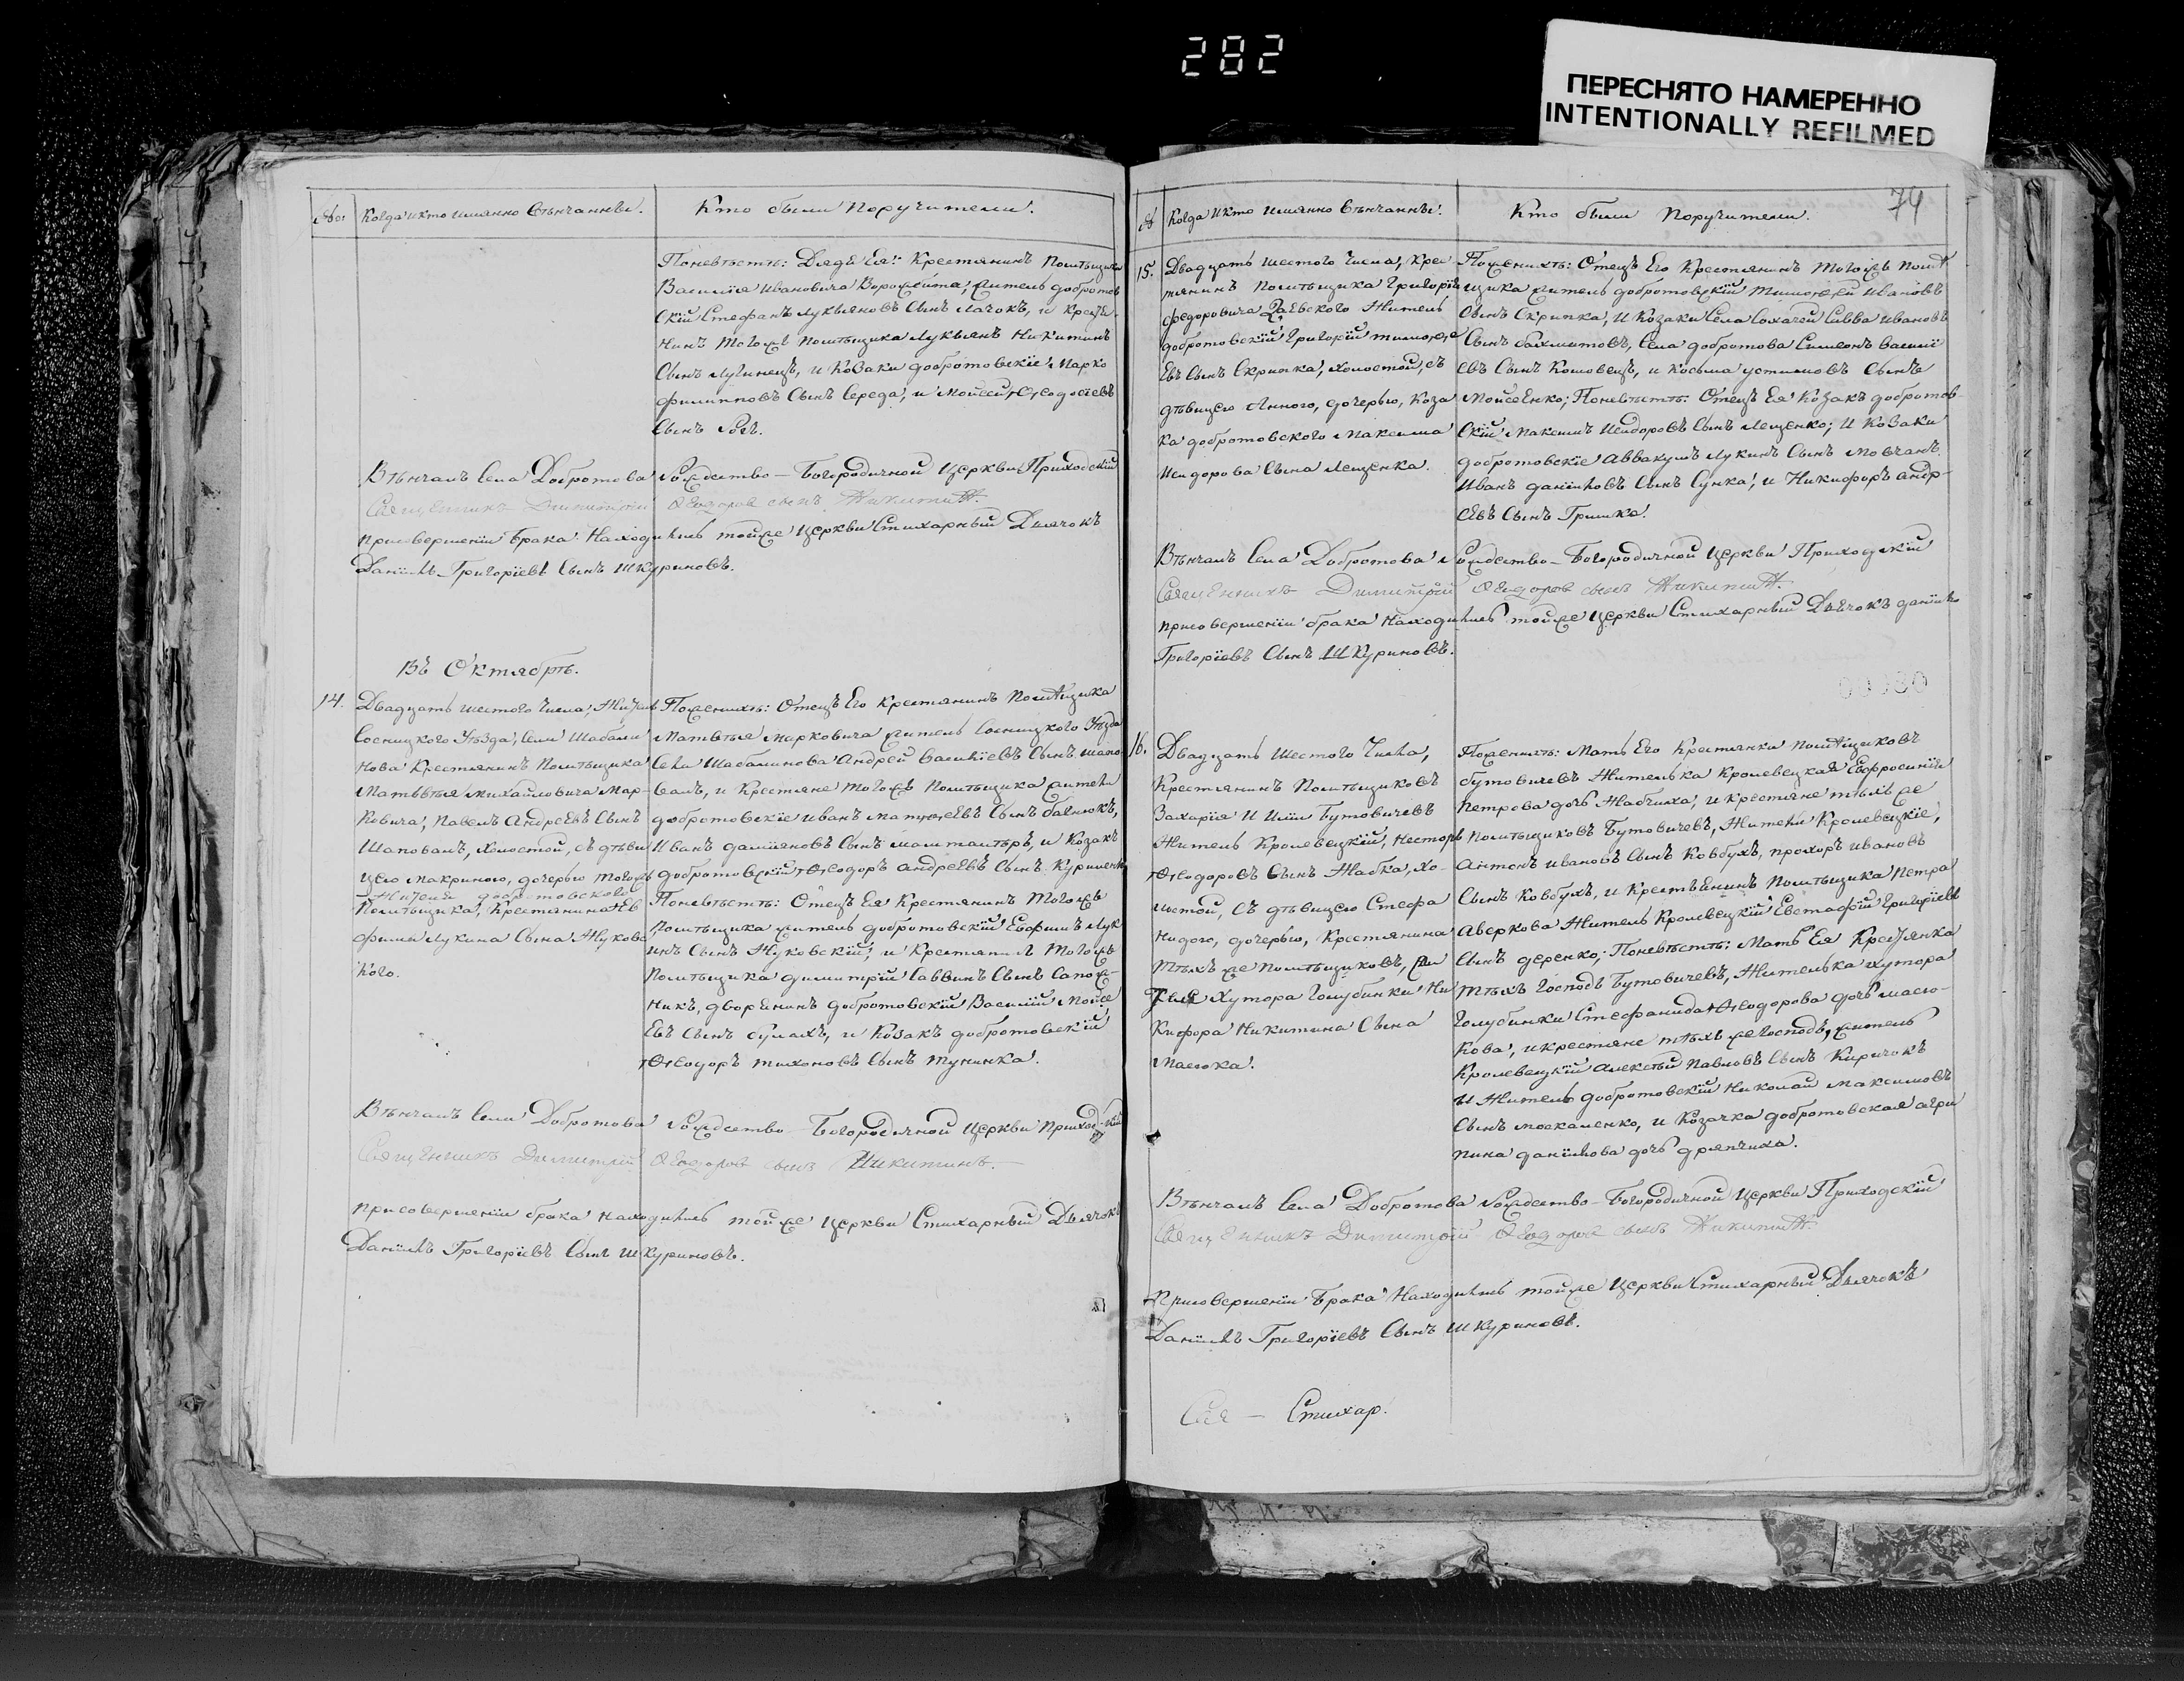 282
ПЕРЕСНЯТО НАМЕРЕННО
INTENTIONALLY REFILMED
№ Когда и кто имянно Вѣнчанны.
Кто были Поручители.
Поневѣстѣ: Дядѣ Ея: Крестянинъ Помѣщика
Василія Ивановича житель добротов
скій Стефанъ Лукьяновъ Сынъ и Крестя
нинъ Тогожъ Помѣщика Лукьянъ Никитинъ
Сынъ Лучинецъ, и Козаки добротовскіе Марко
филипповъ Сынъ Середа, и Мойсей Ѳеодосіевъ
Сынъ
Вѣнчалъ Села Добротова Рождество-Богородичной Церкви Приходскій
Священникъ Димитрій Ѳеодоров сынъ Никитин.
присовершеніи Брака Находились тойже Церкви Стихарный Дьячокъ
Даніилъ Григоріевъ Сынъ Шкуриновъ.
Въ Октябрѣ.
14.
Двадцать шестого Числа, Житель
Сосницкого Уѣзда, Села Шабали
нова Крестянинъ Помѣщика
Матвѣя Михайловича Мар-
ковича, Павелъ Андреевъ Сынъ
Шаповалъ, холостой, съ дѣви
цею Макриною, дочерью Тогожъ
Жителя добротовского
Помѣщика, Крестянина Ев
фима Лукина Сына Жуковс
кого.
Поженихѣ: Отецъ Его Крестянинъ Помѣщика
Матвѣя Марковича житель Сосницкого Уѣзда
Села Шабалинова Андрей Василіевъ Сынъ Шапо
валъ, и Крестяне Тогожъ Помѣщика жители
добротовскіе Иванъ Матѵѳеевъ Сынъ
Иванъ даміяновъ Сынъ и Козакъ
добротовскій Ѳеодоръ Андреевъ Сынъ Куриленко
Поневѣстѣ: Отецъ Ея Крестянинъ Тогожъ
Помѣщика житель добротовскій Евфимъ Лук
инъ Сынъ Жуковскій, и Крестянинъ Тогожъ
Помѣщика димитрій Саввинъ Сынъ Сапож-
никъ, дворянинъ добротовскій Василій Мойсе
евъ Сынъ и Козакъ добротовскій
Ѳеодоръ тихоновъ Сынъ
Вѣнчалъ Села Добротова Рождество Богородичной Церкви Приходскій
Священникъ Димитрій Ѳеодоров сынъ Никитинъ.
присовершеніи брака находились тойже Церкви Стихарный Дьячокъ
Даніилъ Григоріевъ Сынъ Шкуриновъ.
74
№ Когда и кто имянно Вѣнчанны.
Кто были Поручители.
15.
Двадцать шестого Числа, Крес
тянинъ Помѣщика Григорія
федоровича Житель
добротовскій Григорій тимофе
евъ Сынъ Скрипка, холостой, съ
дѣвицею Анною, дочерью, Коза
ка добротовского Максима
Исидорова Сына Лещенка.
Поженихѣ: Отецъ Его Крестянинъ Тогожъ Помѣ
щика житель добротовскій Тимофей Ивановъ
Сынъ Скрипка, И Козаки Села Сохачей Савва Ивановъ
Сынъ Бахматовъ, Села добротова Симеонъ Василі
евъ Сынъ Кошовецъ, и Косьма устимовъ Сынъ
Мойсеенко; Поневѣстѣ: Отецъ Ея Козакъ добротов-
скій Максимъ Исидоровъ Сынъ Лещенко; И Козаки
добротовскіе Аввакумъ Лукинъ Сынъ Мовчанъ,
Иванъ даниловъ Сынъ и Никифоръ андр-
еевъ Сынъ Гришка.
Вѣнчалъ Села Добротова Рождество-Богородичной Церкви Приходскій
Священникъ Димитрій Ѳеодоров сынъ Никитин.
присовершеніи брака находились тойже Церкви Стихарный Дьячокъ даніилъ
Григоріевъ Сынъ Шкуриновъ.
16.
Двадцать Шестого Числа,
Крестянинъ Помѣщиковъ
Захарія И Иліи Бутовичевъ
Житель Кролевецкій, Несторъ
Ѳеодоровъ Сынъ Жабка, хо-
лостой, съ дѣвицею Стефа
нидою, дочерью, Крестянина
Тѣхъ же Помѣщиковъ, жи
теля Хутора Голубинки Ни
кифора Никитина Сына
Масюка.
Поженихѣ: Мать Его Крестянка помѣщиковъ
Бутовичевъ Жителька Кролевецкая Евфросинія
Петрова дочь Жабчиха, и крестяне тѣхъ же
Помѣщиковъ Бутовичевъ, Жители Кролевецкіе,
Антонъ Ивановъ Сынъ Ковбухъ, прохоръ Ивановъ
Сынъ Ковбухъ, и Крестьенинъ Помѣщика Петра
Аверкова Житель Кролевецкій Евстафій Григоріевъ
Сынъ деренко; Поневѣстѣ: Мать Ея Крестянка
тѣхъ Господъ Бутовичевъ, Жителька хутора
Голубинки Стефанида Ѳеодорова дочь масю-
кова, и крестяне тѣхъ же господъ, житель
Кролевецкій Алексѣй Павловъ Сынъ Киричокъ
И Житель добротовскій Николай Максимовъ
Сынъ москаленко, и Козачка добротовская агри
пина данілова дочь
Вѣнчалъ Села Добротова Рождество-Богородичной Церкви Приходскій
Священникъ Димитрій Ѳеодоров сынъ Никитин.
Присовершеніи Брака Находились тойже Церкви Стихарный Дьячокъ
Даніилъ Григоріевъ Сынъ Шкуриновъ.
Свя — Стихар.